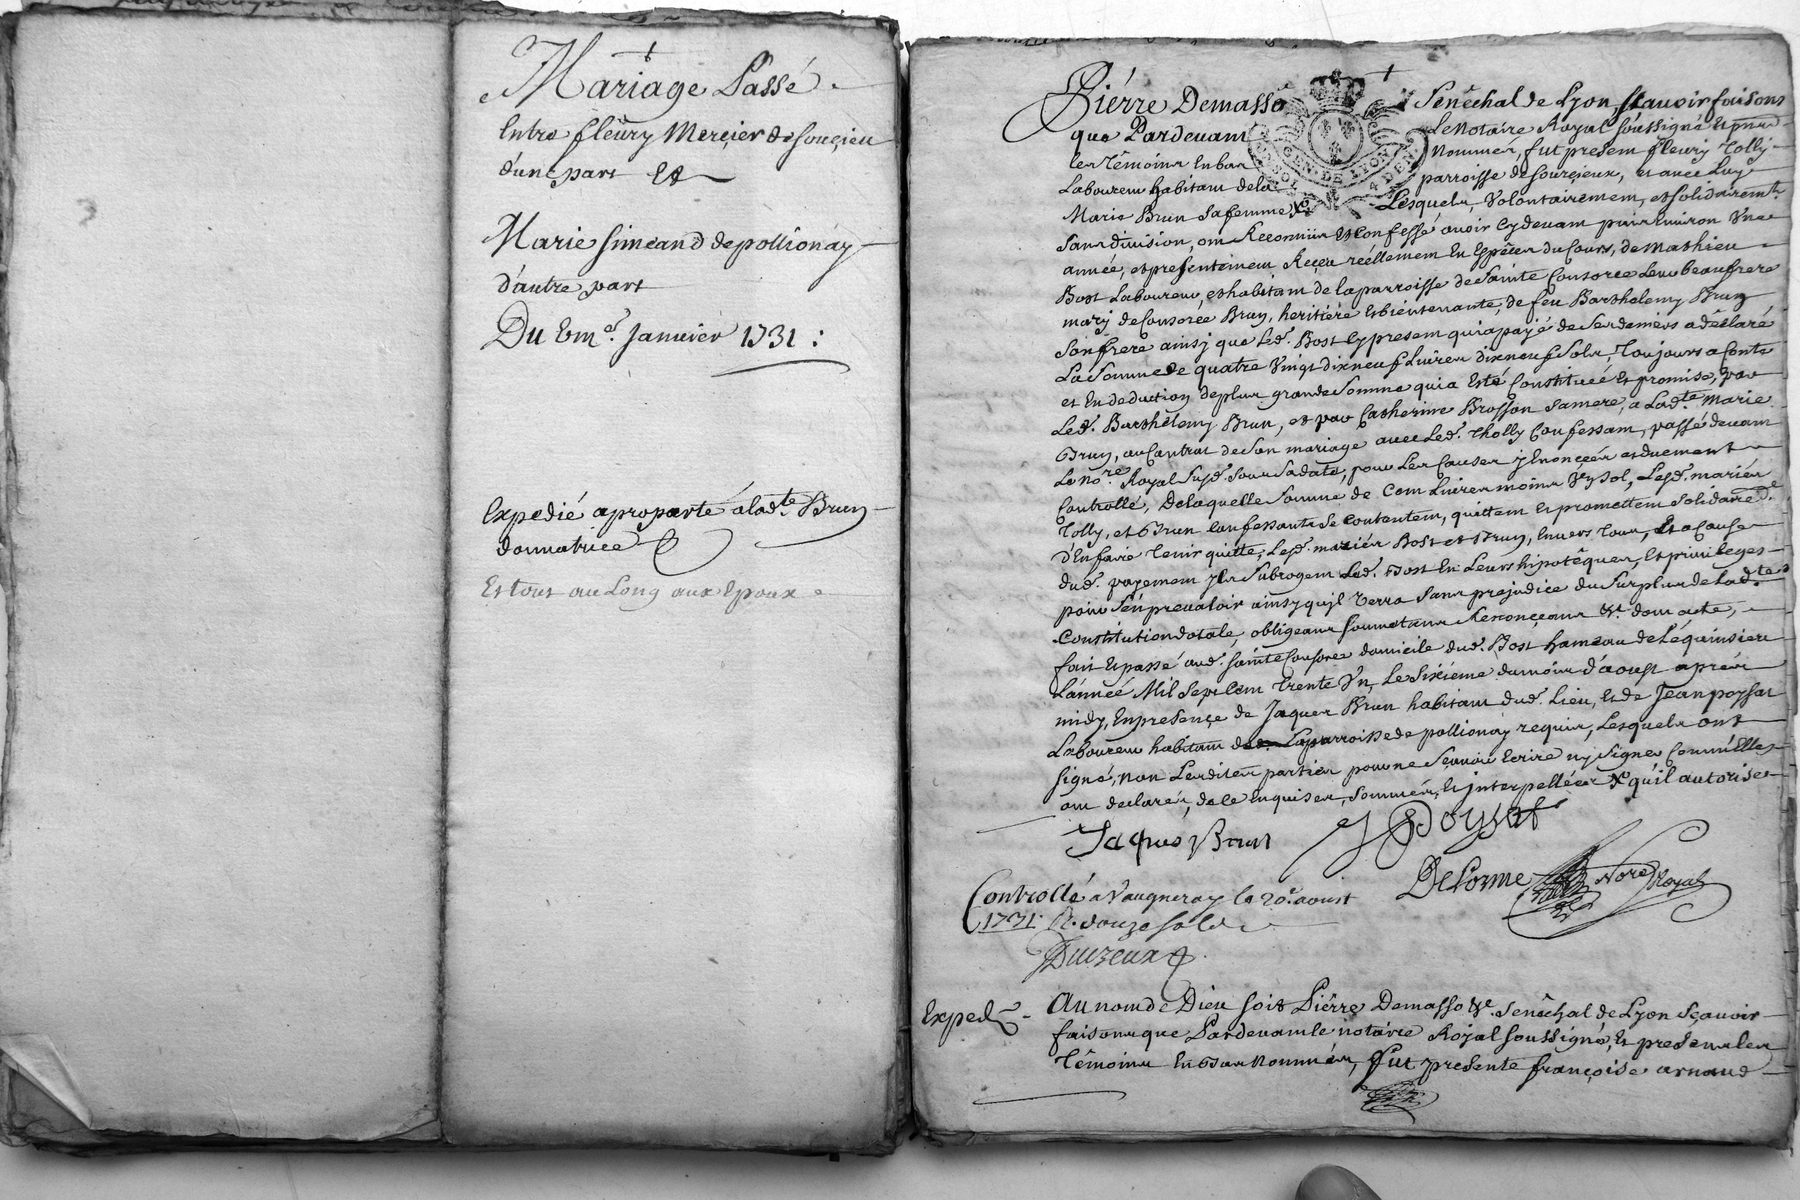 Mariage Passé
Entre fleury Merçier de souçieu
d'une part Et
Marie simeand de pollionay
d'autre part
Du 6me. Janvier 1731 :
Expedié a pro parte a lad.te Brun
donnatrice
Et tout au Long aux Epoux
Piérre Demasso Senêchal de Lyon, sçavoir faisons
que Pardevant Le Notaire Royal soussigné Et pnts
les Témoins En bas Nommes, fut present fleury Tolly
Laboureur habitant de la parroisse de sourçieux, et avec Luy
Marie Brun sa femme Lesquels, Volontairement, et solidairemt.
sans division, ont Reconnu et Confessé avoir Cy devant puis Environ Une
année, et presentement Reçeu réellement En Espêces du Cours, de Mathieu
Bost Laboureur, et habitant de la parroisse de Sainte Consorce Leur beaufrere
mary de Consorce Brun, heritiére et bientenante, de feu Barthelemy Brun
son frere ainsy que Led. Bost Cy present qui a payé de ses deniers a déclaré
La Somme de quatre Vingt dix neuf Livres dix neuf Sols, Toujours a Conte
et En deduction de plus grande Somme qui a Esté Constituée Et promise, par
Led. Barthélemy Brun, et par Catherine Brosson sa mere, a Lad.te Marie
Brun, au Contrat de son mariage avec Led. Tholly Confessant, passé devant
Le No.re Royal susd. sous sa date, pour Les Causes y Enonçées et duement
Controllé, De laquelle Somme de Cent Livres moins Un sol, Lesd. mariés
Tolly, et Brun Confessants se Contentent, quittent Et promettent solidaire
d'En faire Tenir quitte, Lesd. mariés Bost et Brun, Envers Tous, Et a Cause
dud. payement ils subrogent Led. Bost En Leurs hipotêques, Et privileges
pour s'en prevaloir ainsy qu'il Verra sans prejudice du surplus de Lad.te
Constitution dotale, obligeans soumetans Renonçeans &c. dont acte,
fait Et passé aud. sainte Consorce domicile dud. Bost hameau de Léquinsieu
L'année Mil Sept Cent Trente Un, Le Sixiéme du mois d'aoust aprés
midy, En presençe de Jaques Brun habitant dud. Lieu, Et de Jean poysat
Laboureur habitant de la parroisse de pollionay requis, Lesquels ont
signé, non Lesdites parties pour ne Sçavoir Ecrire ny signer Comm'Elles
ont declarées, de ce Enquises, Sommées, Et interpellées &c. qu'il autorise
Jaques Brun J Poysat
Delorme No.re Royal
Controllé a Vaugneray le 20e. aoust
1731. R. douze sols
Duizeux
Exped. Au nom de Dieu soit Piêrre Demasso &c. Senêchal de Lyon Sçavoir
faisons que Pardevant le notaire Royal soussigné, Et presens les
Témoins En Bas Nommés, fut presente françoise arnaud